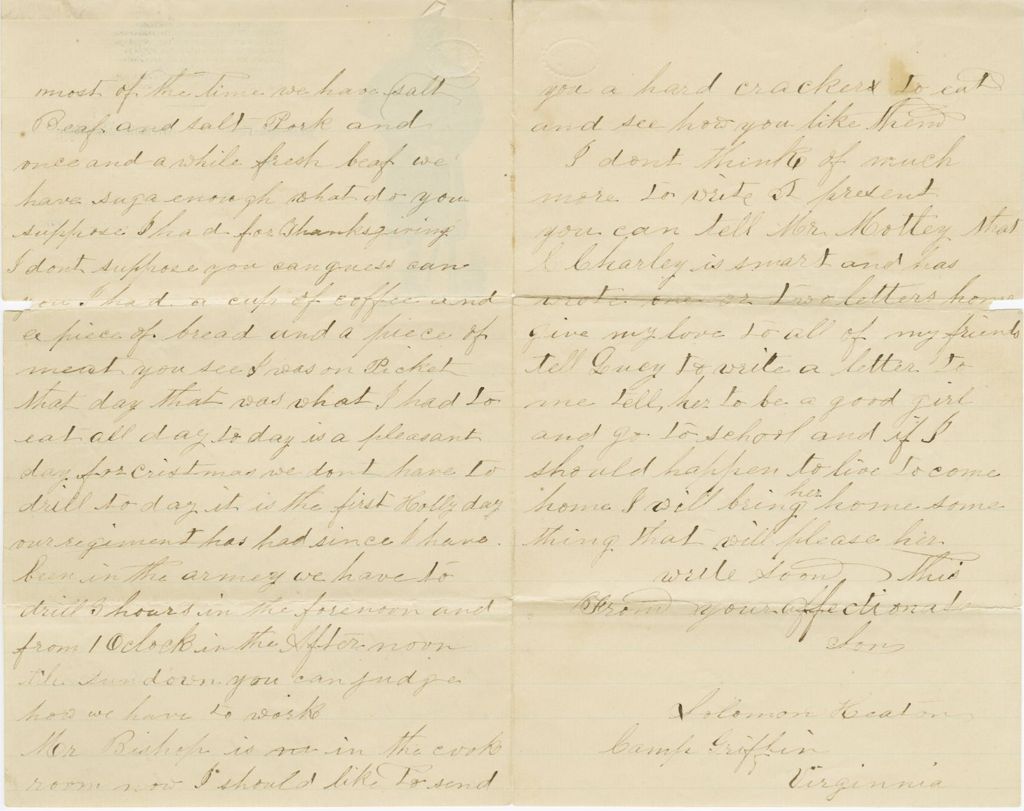 most of the time we have salt
Beaf and salt Pork and
once and a while fresh beaf we
have suga enough what do you
suppose I had for thanksgiving
I dont suppose you can guess can
you I had a cup of coffee and
a piece of bread and a piece of
meat you see I was on Picket
that day that was what I had to
eat all day to day is a pleasant
day for cristmas we dont have to
drill to day it is the first Holly day
our regiment has had since I have
been in the armey we have to
drill 3 hours in the forenoon and
from 1 Oclock in the After noon
till sundown you can judge
how we have to work
Mr Bishop is in the cook
room now I should like to send
you a hard cracker to eat
and see how you like them
I dont think of much
more to write at present
you can tell Mr Mottey that
Charley is smart and has
wrote one or two letters home
give my love to all of my friends
tell Lucy to write a letter to
me tell her to be a good girl
and go to school and if I
should happen to live to come
home I will bring her home some
thing that will please her
write soon this
From your affectionate
Son
Solomon Heaton
Camp Griffin
Virginnia